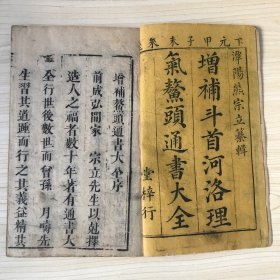 下元甲子
潭陽熊宗立纂輯
增補斗首河洛理
氣鰲頭通書大全
堂梓行
增補鰲頭通書大全序
前成弘間家 宗立先生以剋擇
造人之福者數十年著有通書大
全行世後數世而曾孫 月疇先
生習其道踵而行之其義益精其